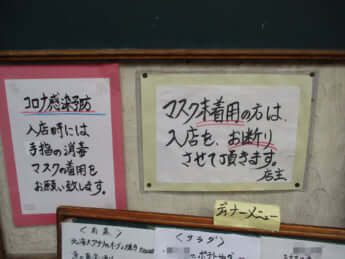 コロナ感染予防
入店時には
手指の消毒
マスクの着用を
お願い致します。
マスク未着用の方は、
入店を、お断り
させて頂きます。
店主
ディナーメニュー
<サラダ>